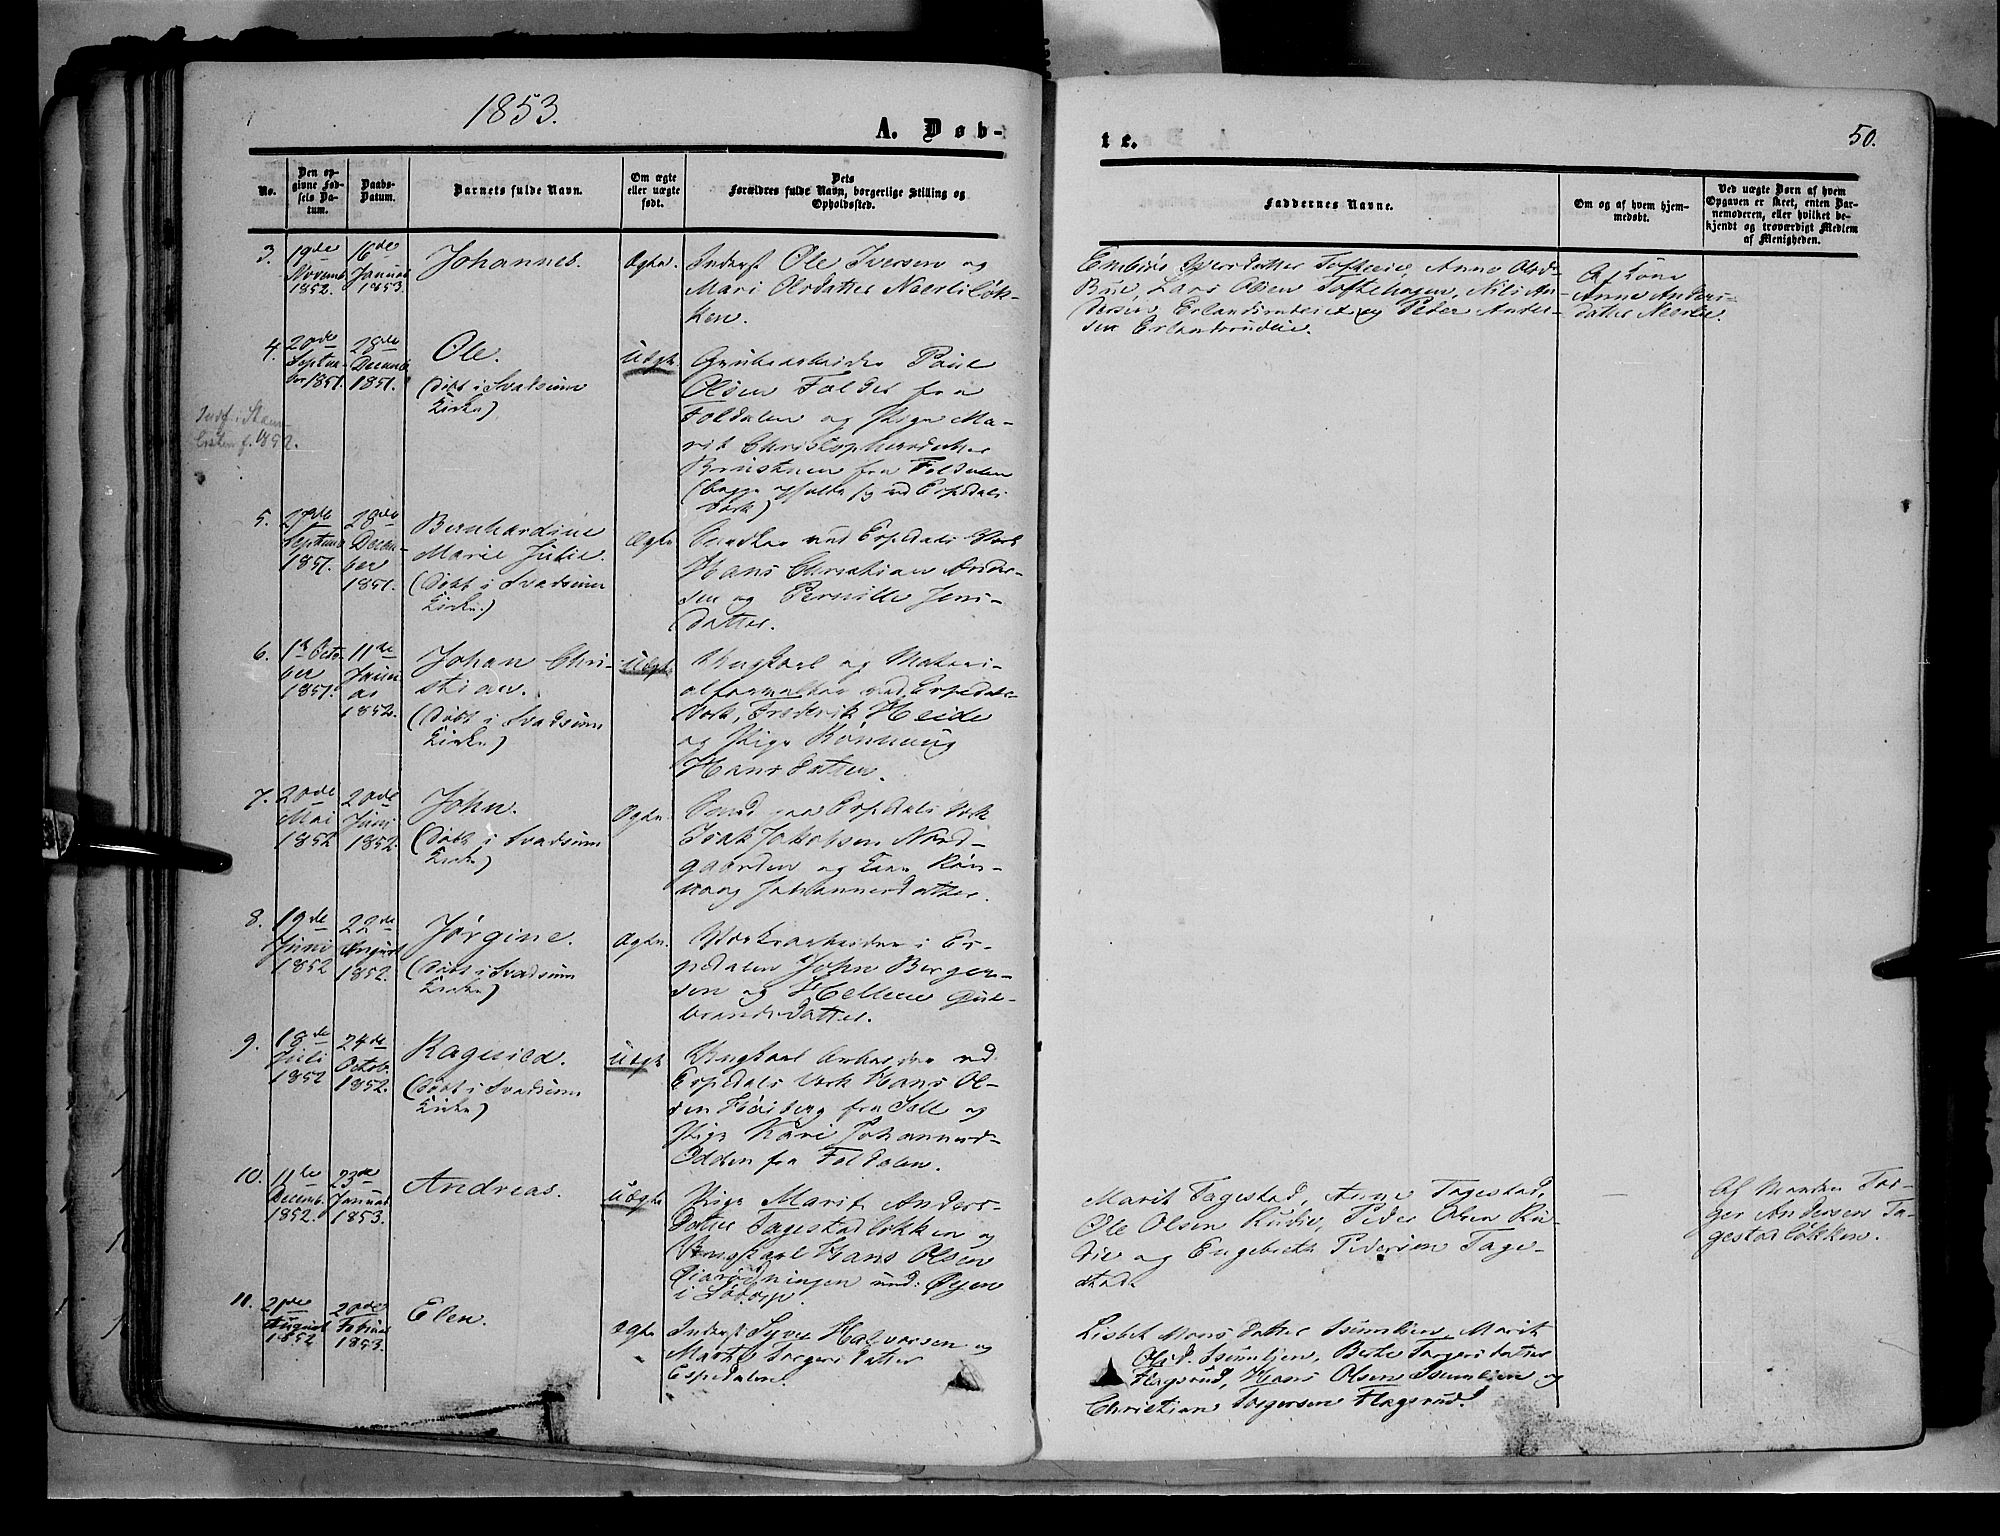 1853.
A. Døb-
te.
50.
No.
Den op-
givne Fød-
sels Da-
tum.
Daabs-
Datum.
Barnets fulde Navn.
Om ægte
eller uægte
født.
Dets
Forældres fulde Navn, borgerlige Stilling og
Opholdssted.
Faddernes Navne.
Om og af hvem hjem-
medøbt.
Ved uægte Børn af hvem
Opgaven er skeet, enten Bar-
nemoderen, eller hvilket be-
kjendt og troværdigt Medlem
af Menigheden.
3.
19de
Novemb.
1852.
16de
Januar
1853.
Johannes.
Ægte.
Inderst Ole Iversen og
Mari Olsdatter Neerliløk-
ken.
Anne Olsd.
Lars Olsen Toftehagen, Nils An-
dersen og Peder Ander-
sen
Anne Anders-
datter
4.
20de
Septem-
ber 1851.
28de
Decemb
1851.
Ole.
(Døbt i Svadsum
Kirke)
Uægte
Grubearbeider Paul
Olsen Foldal fra
Foldalen og Pige Ma-
rit Christophersdatter
fra Foldalen
(begge ved Espedals
Værk)
1852.
5.
Septemb
1851.
28de
Decem-
ber
1851.
Bernhardine
Marie Julie.
(Døbt i Svadsum
Kirke.)
Ægte
ved Espedals Værk
Hans Christian Ander-
sen og Pernille Jens-
datter.
6.
1st Octo-
ber
1851.
11de
Janu-
ar
1852.
Johan Chri-
stian.
(Døbt i Svadsum
Kirke)
Uægte
Ungkarl og Materi-
alforvalter ved Espedals
Værk, Frederik Heide
og Pige Rønnaug
Hansdatter.
7.
20de
Mai
1852
20de
Juni
1852.
John.
(Døbt i Svadsum
Kirke)
Ægte.
Smed paa Espedals Værk
Isak Jakobsen Nord-
gaarden og Kone Røn-
naug Johannesdatter.
8.
19de
Juni
1852
22de
August
1852.
Jørgine.
(Døbt i Svadsum
Kirke)
Ægte.
Værksarbeider i Es-
pedalen John Bergen-
sen og Hellene Gud-
brandsdatter.
9.
18de
Juli
1852
24de
Octob.
1852.
Ragnild.
(Døbt i Svadsum
Kirke)
Uægte
Ungkarl Arbeider ved
Espedals Værk Hans Ol-
sen Høiberg fra Sell og
Pige Kari Johannesd.
Odden fra Foldalen.
10.
11te
Decemb.
1852.
23de
Januar
1853.
Andreas.
Uægte
Pige Marit Anders-
datter Tagestadløkken og
Ungkarl Hans Olsen
und: Øyen
i Sødorp.
Marit Tagestad, Anne Tagestad,
Ole Olsen Rudie, Peder Olsen Ru-
die og Engebreth Pedersen Tage-
stad.
Af Manden Tor-
ger Andersen Ta-
gestadløkken.
11.
21de
August
1852
20de
Februar
1853.
Elen.
Ægte
Inderst Syver Halvorsen og
Marthe Torgersdatter
Espedalen.
Lisbet Hansdatter Ssumlien, Marit
Olsd. Ssumlien, Berte Torgersdatter
Flagsrud, Hans Olsen Ssumlien og
Christian Torgersen Flagsrud.